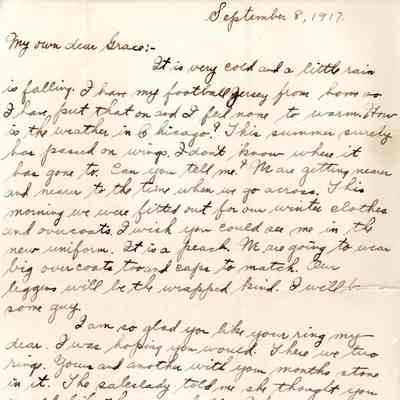 September 8, 1917.
My own dear Grace:-
It is very cold and a little rain
is falling. I have my football jersey from home so
I have put that on and I feel none to warm. How
is the weather in Chicago? This summer surely
has passed on wings. I don't know where it
has gone to. Can you tell me? We are getting nearer
and nearer to the time when we go across. This
morning we were fitted out for our winter clothes
and overcoats. I wish you could see me in the
new uniform. It is a peach. We are going to wear
big overcoats toward caps to match. Our
leggins will be the wrapped kind. I will be
some guy.
I am so glad you like your ring my
dear. I was hoping you would. There were two
rings. Yours and another with your months stone
in it. The saleslady told me she thought you